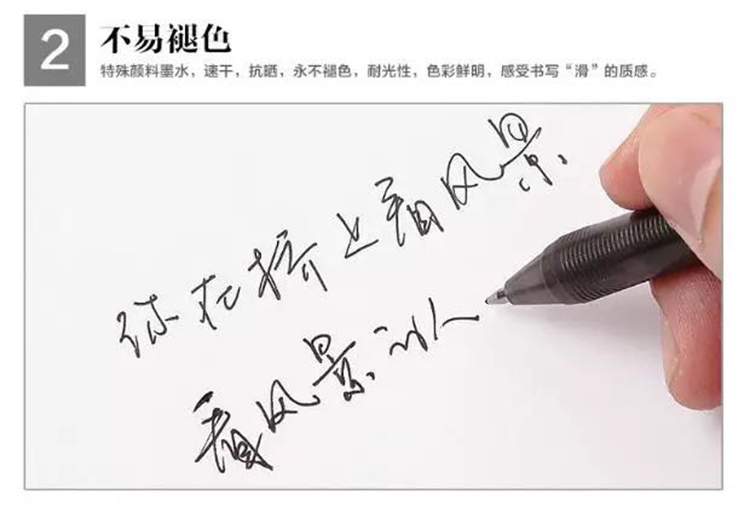 2
不易褪色
特殊颜料墨水，速干，抗晒，永不褪色，耐光性，色彩鲜明，感受书写“滑”的质感。
你在桥上看风景
看风景的人